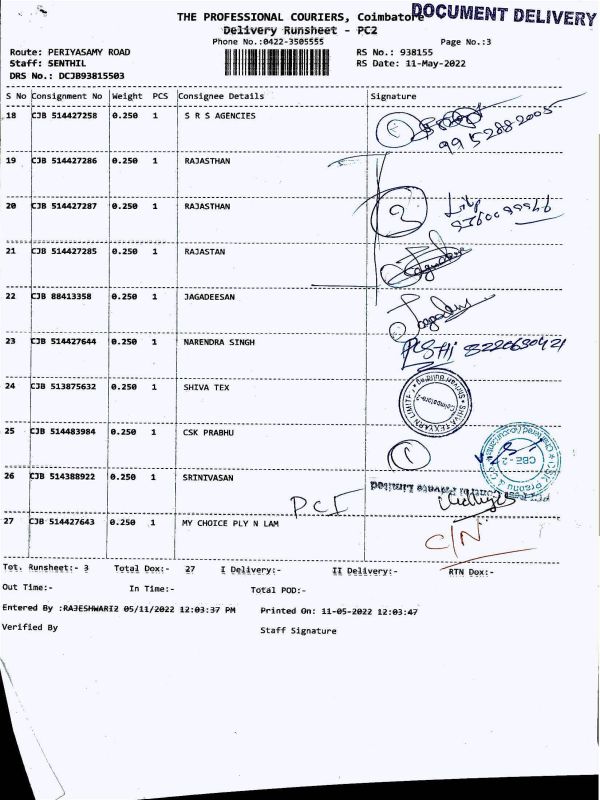 THE PROFESSIONAL COURIERS, Coimbatore
DOCUMENT DELIVERY
Delivery Runsheet - PC2
Phone No.:0422-3505555
Page No.:3
Route: PERIYASAMY ROAD
RS No.: 938155
Staff: SENTHIL
RS Date: 11-May-2022
DRS No.: DCJB93815503
S No Consignment No Weight PCS Consignee Details Signature
18 CJB 514427258 0.250 1 S R S AGENCIES
9952882005
19 CJB 514427286 0.250 1 RAJASTHAN
20 CJB 514427287 0.250 1 RAJASTHAN
2
21 CJB 514427285 0.250 1 RAJASTAN
22 CJB 88413358 0.250 1 JAGADEESAN
23 CJB 514427644 0.250 1 NARENDRA SINGH
8220690421
24 CJB 513875632 0.250 1 SHIVA TEX
25 CJB 514483984 0.250 1 CSK PRABHU
1
26 CJB 514388922 0.250 1 SRINIVASAN
PCI
27 CJB 514427643 0.250 1 MY CHOICE PLY N LAM
C/N
Tot. Runsheet:- 3 Total Dox:- 27 I Delivery:- II Delivery:- RTN Dox:-
Out Time:- In Time:- Total POD:-
Entered By :RAJESHWARI2 05/11/2022 12:03:37 PM Printed On: 11-05-2022 12:03:47
Verified By Staff Signature